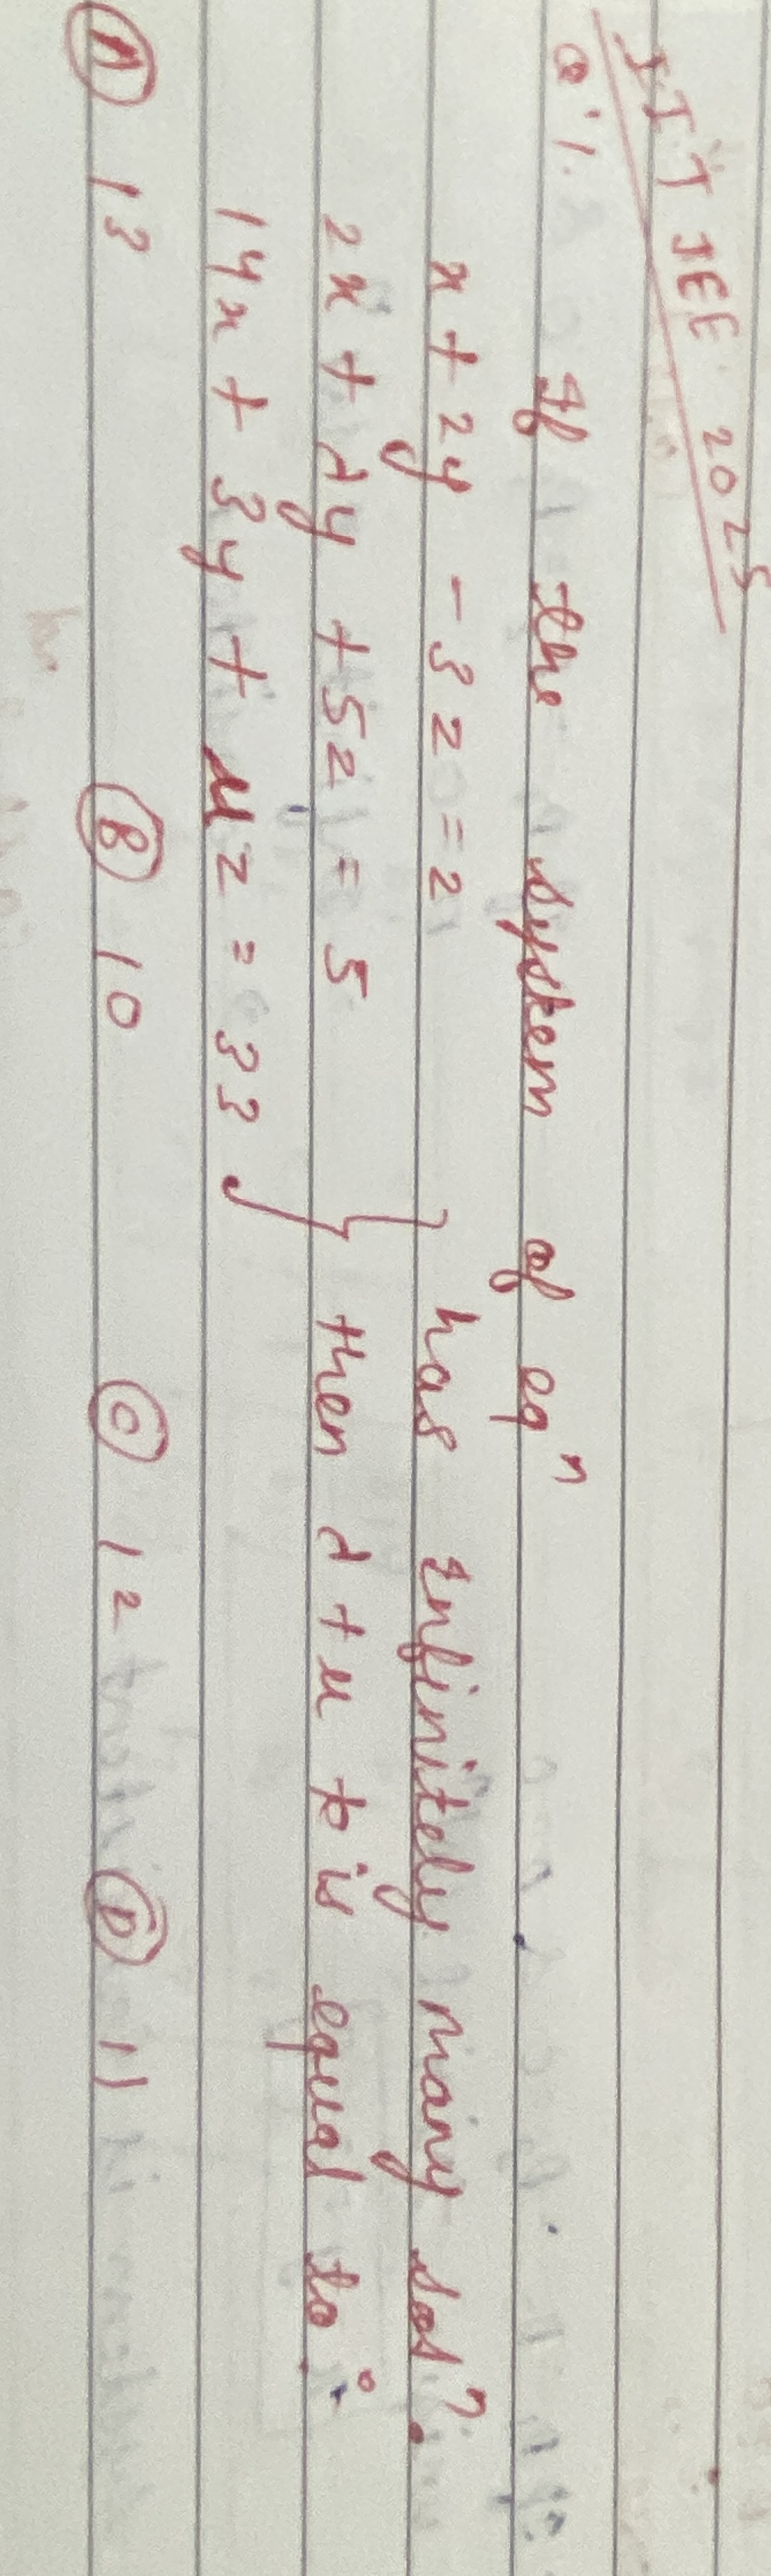 IIT JEE 2025
Q1. If the system of eqⁿ
x + 2y - 3z = 2
2x + λy + 5z = 5
14x + 3y + μz = 33
} has infinitely many solⁿ.
then λ + μ is equal to :
Ⓐ 13 Ⓑ 10 Ⓒ 12 Ⓓ 11